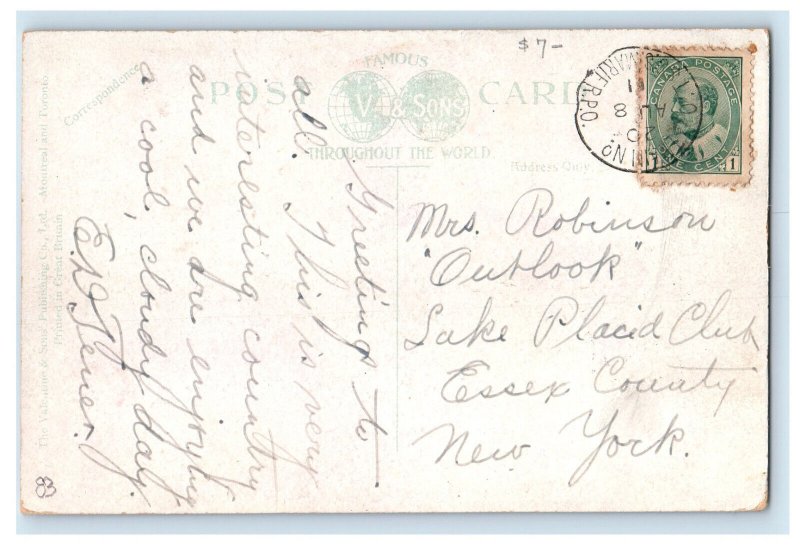 $7-
FAMOUS
POST CARD
V. & SONS
THROUGHOUT THE WORLD
Correspondence
Address Only
The Valentine & Sons' Publishing Co., Ltd., Montreal and Toronto
Printed in Great Britain
CANADA POSTAGE
ONE CENT
1
AU 8
11
Greetings to
all. This is very
interesting country
and we are enjoying
a cool, cloudy day.
Mrs. Robinson
"Outlook"
Lake Placid Club
Essex County
New York.
83